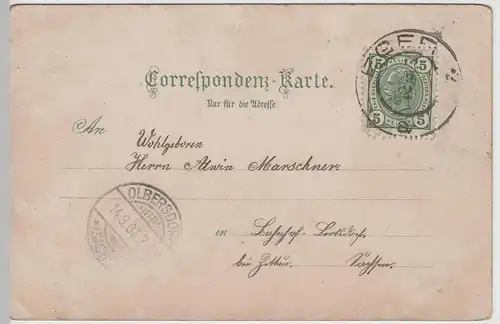 Correspondenz-Karte.
Nur für die Adresse.
An
Wohlgeboren
Herrn Alwin Marschner
in Bahnhof-
bei Zittau, Sachsen.
5 5
5 5
OLBERSDORF
14.9.0